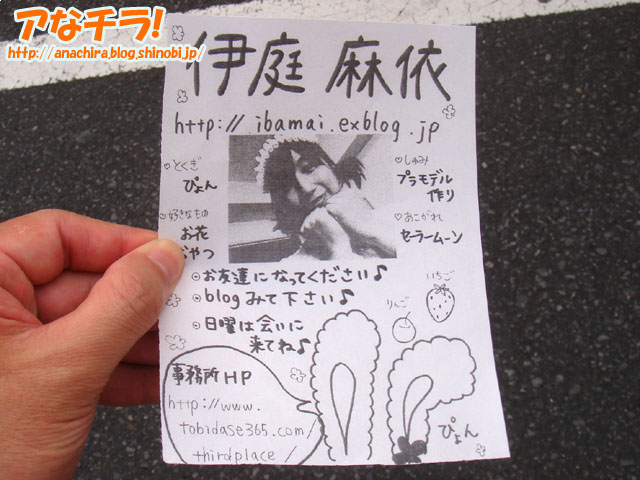 アなチラ!
http://anachira.blog.shinobi.jp/
伊庭 麻依
http://ibamai.exblog.jp
♡とくぎ
ぴょん
♡好きなもの
お花
おやつ
♡しゅみ
プラモデル
作り
♡あこがれ
セーラームーン
◎お友達になってください♪
◎blogみて下さい♪
◎日曜は会いに
来てね♪
いちご
りんご
事務所HP
http://www.
tobidase365.com/
thirdplace/
ぴょん